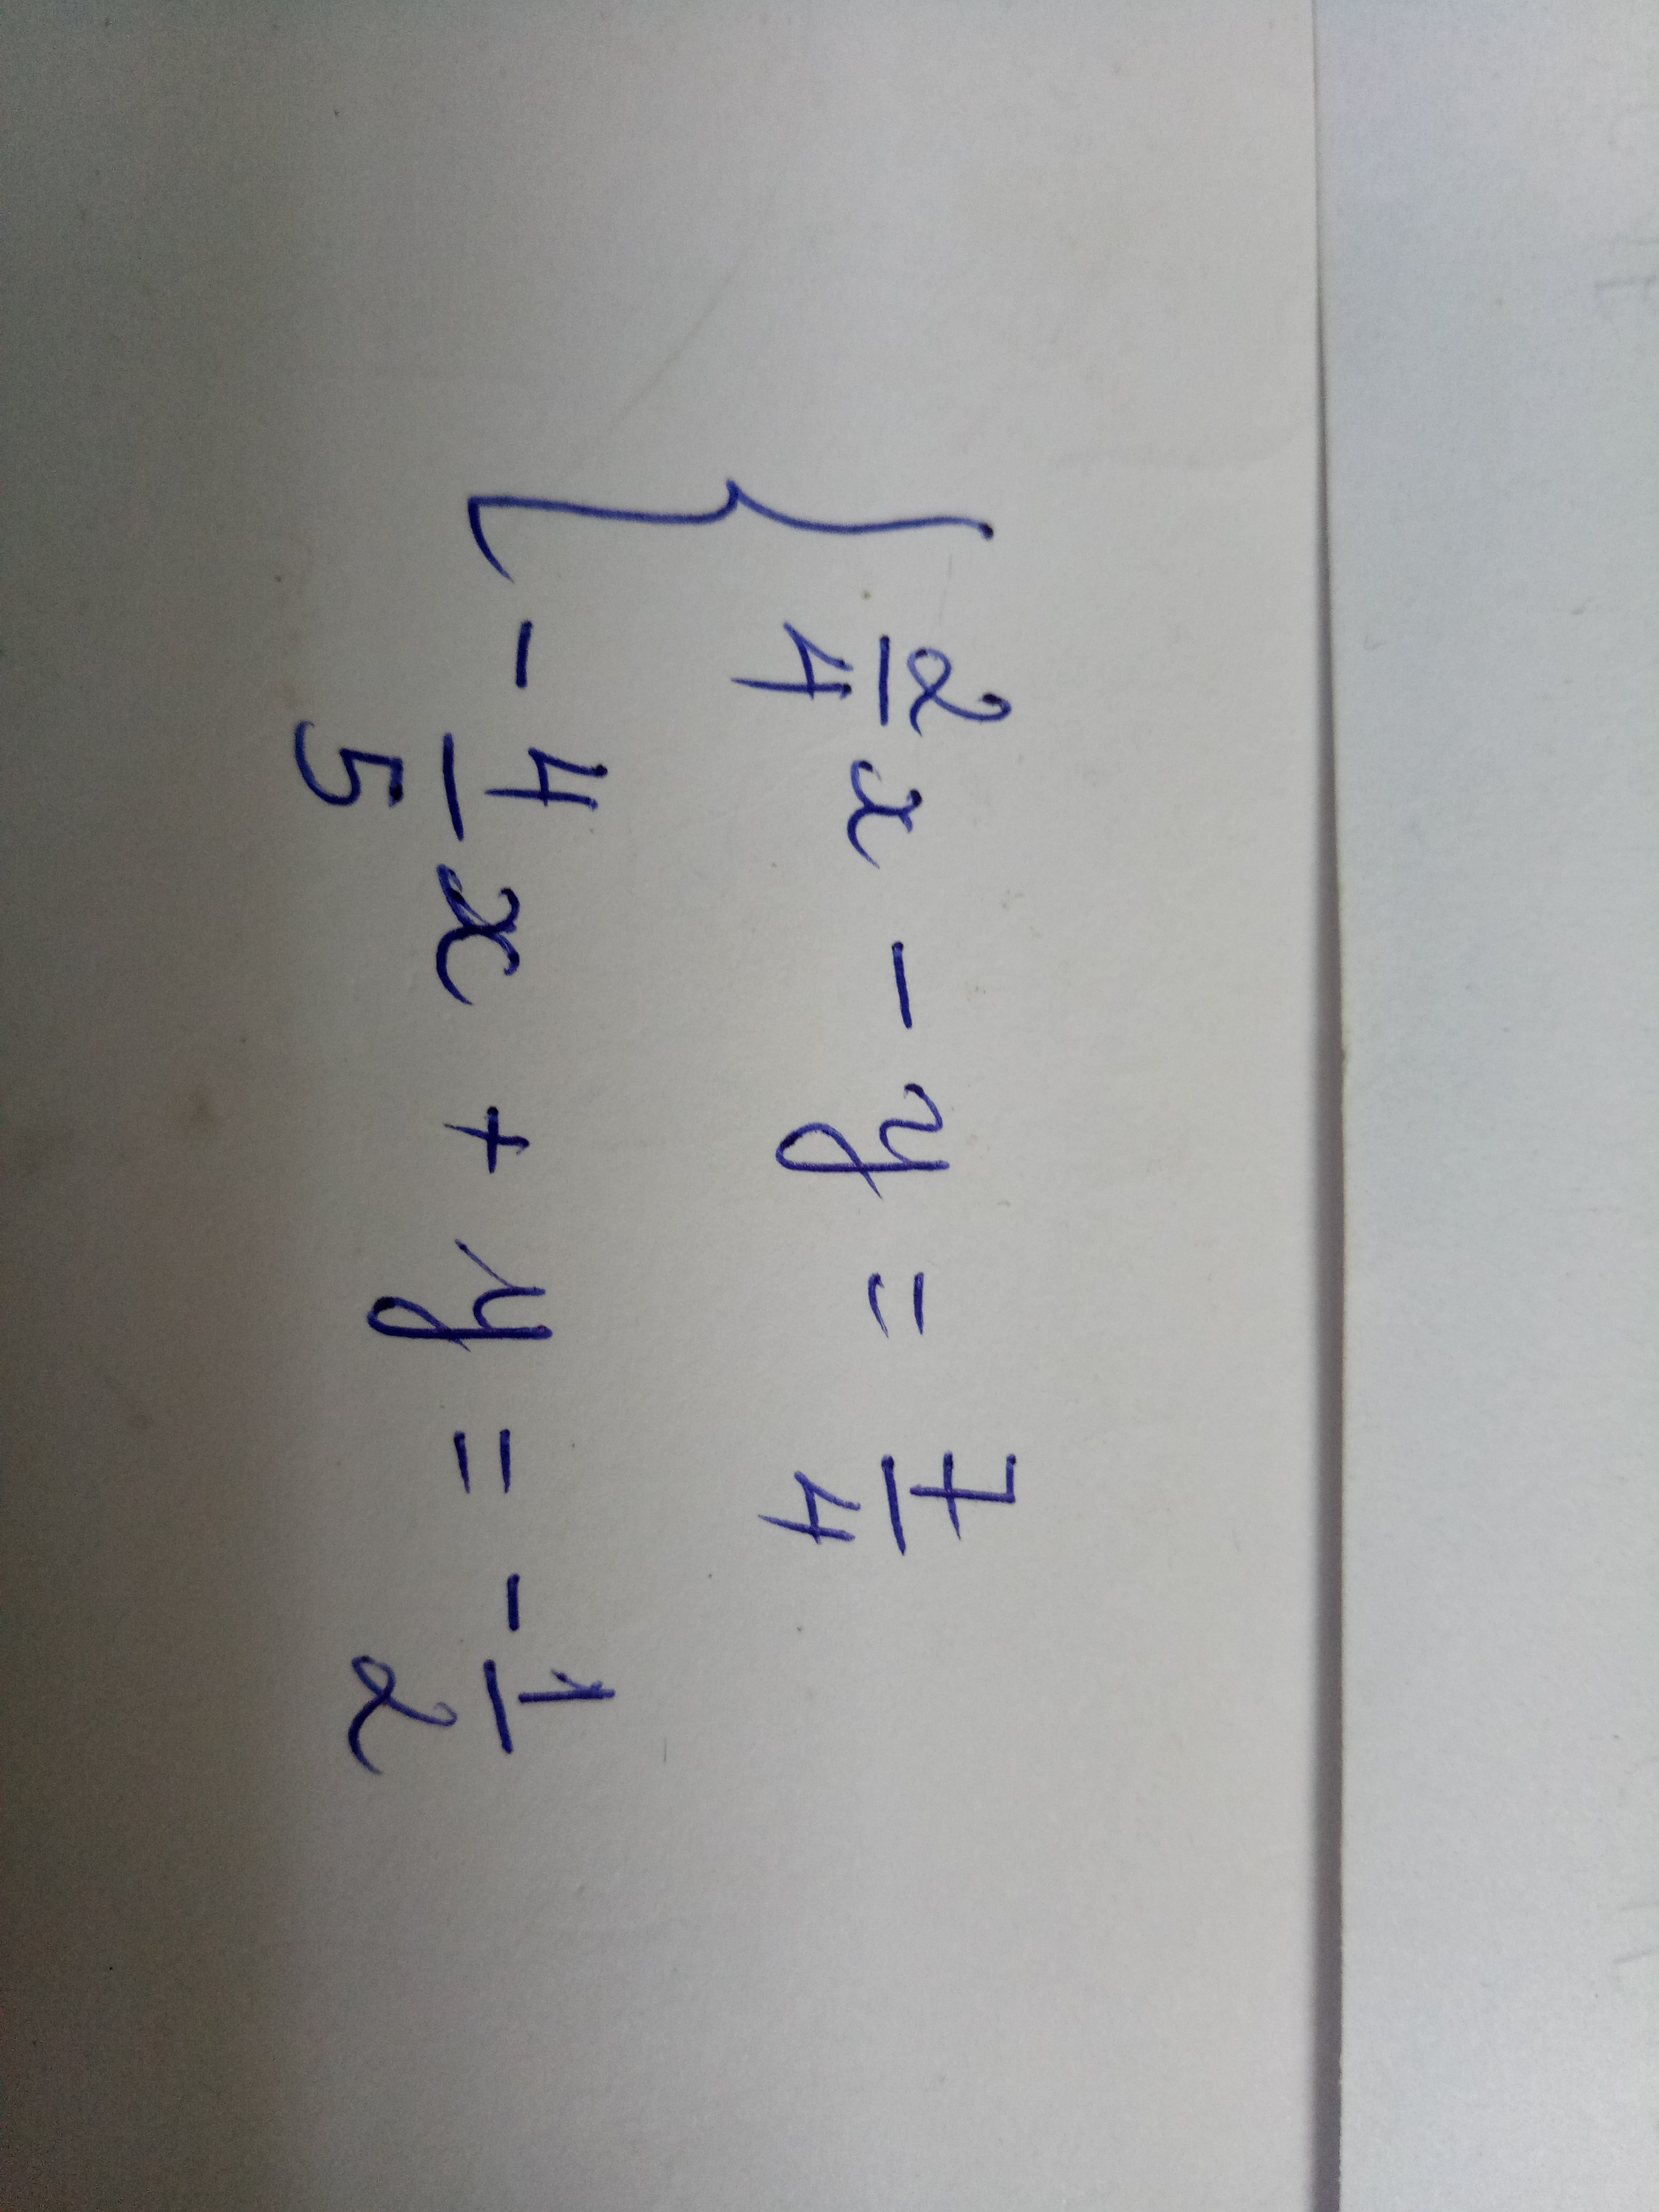 2/4 x - y = 7/4
- 4/5 x + y = - 1/2